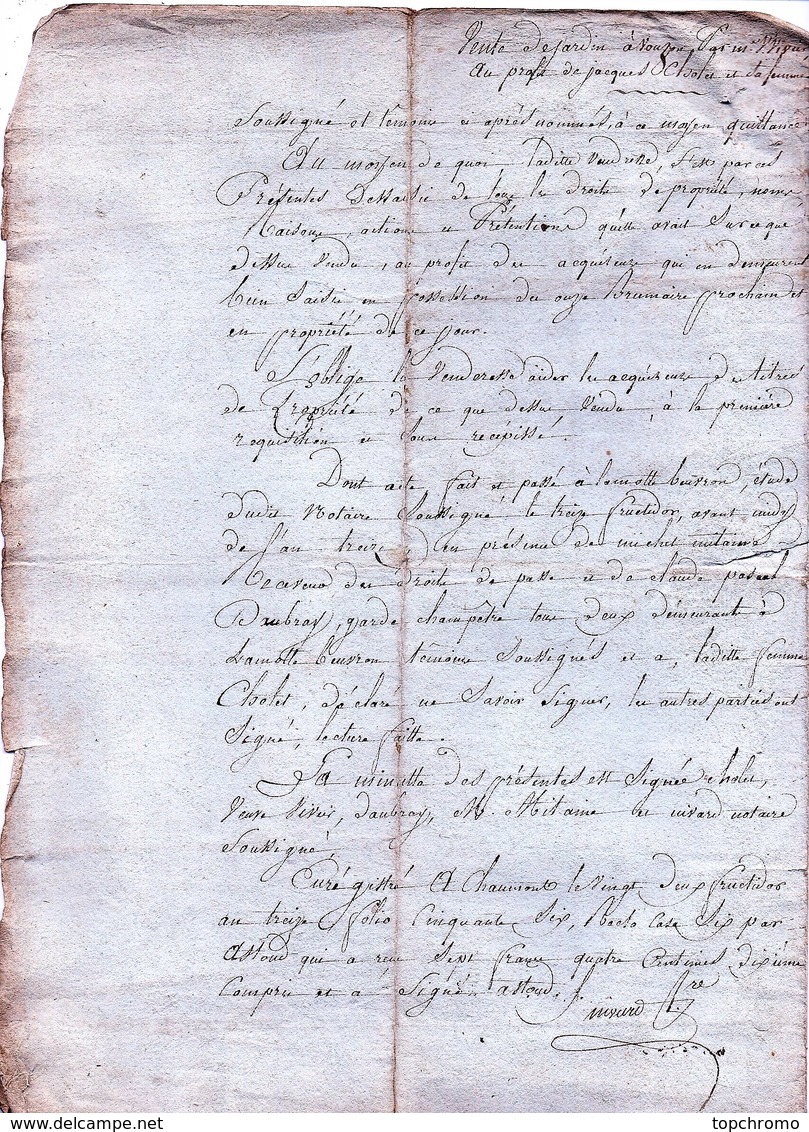 Vente de jardin à vouzon, Par m.
au profit de jacques Cholet et sa femme
Soussigné et témoins ci après nommés, à ce moyen quittance
Au moyen de quoi laditte Vendresse, s'est par ces
Présentes Dessaisie de tous les droits de propriété, noms,
Raisons, actions et Prétentions qu'elle avait sur ce que
dessus Vendu, au profit des acquéreurs qui en demeurent
bien saisis en possession du onze brumaire prochain et
en propriété de ce jour.
S'oblige la Venderesse d'aider les acquéreurs des titres
de Propriété de ce que dessus Vendu, à la première
réquisition et sous récépissé.
Dont acte, fait et passé à lamotte beuvron, étude
dudit Notaire Soussigné le treize fructidor, avant midy
de l'an treize, en présence de michel mitaine
Receveur des droits de passe et de claude pascal
Daubray, garde champêtre tous deux demeurants à
Lamotte beuvron témoins Soussignés et a, laditte femme
Cholet, déclaré ne Savoir Signer, les autres parties ont
Signé, lecture faitte.
La minutte des présentes est Signée Cholet,
Veuve Vivier, daubray, M. Mitaine et nivard notaire
Soussigné
Enrégistré à Chaumont le vingt deux fructidor
an treize folio Cinquante Six, Recto Case Six par
Astoud qui a reçu Sept francs quatre Centimes dixième
Compris et a Signé. astoud.
nivard
topchromo